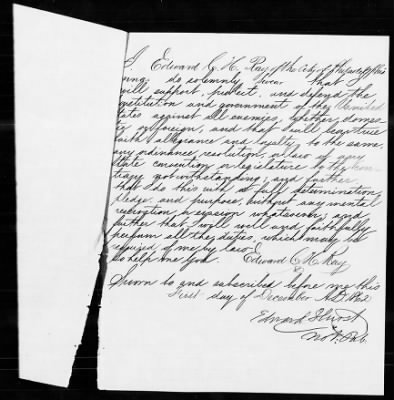 I, Edward C. H. Ray of the City of
do solemnly swear that I
will support, protect, and defend the
Constitution and government of the United
States against all enemies, whether domes
tic or foreign, and that I will bear true
faith allegiance and loyalty to the same,
any ordinance, resolution, or law of any
State convention or legislature to the con
trary notwithstanding; and further
that I do this with a full determination,
pledge, and purpose, without any mental
reservation or evasion whatsoever; and
further that I will well and faithfully
perform all the duties, which may be
required of me by law.
So help me God. Edward C H Ray
Sworn to and subscribed before me this
First day of December A.D. 1862
Edward
Not. Pub.